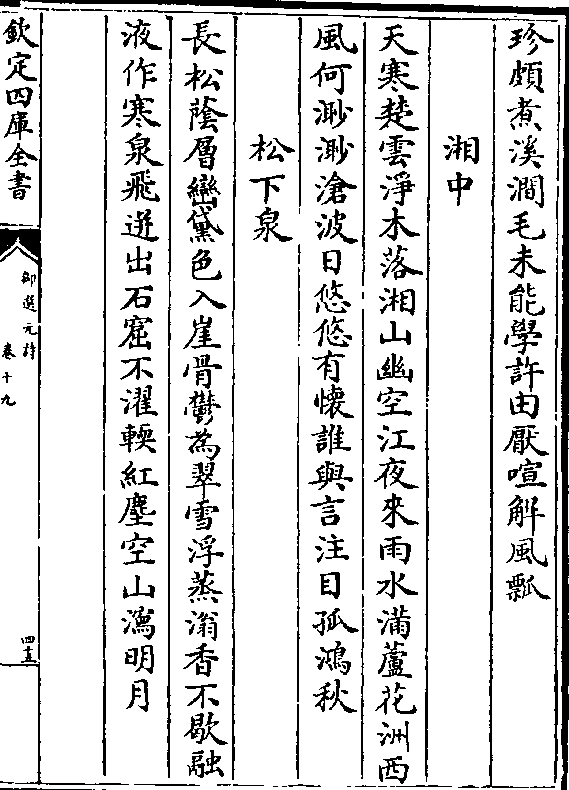 珍頗煮溪澗毛未能學許由厭喧解風瓢
湘中
天寒楚雲淨木落湘山幽空江夜來雨水滿蘆花洲西
風何渺渺滄波日悠悠有懷誰與言注目孤鴻秋
松下泉
長松蔭層巒黛色入崖骨鬱為翠雪浮蒸滃香不歇融
液作寒泉飛迸出石窟不濯輭紅塵空山瀉明月
欽定四庫全書
御選元詩
卷十九
四五